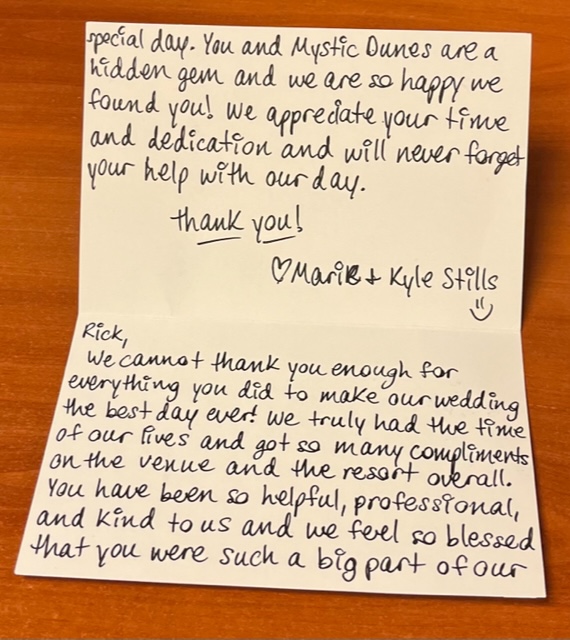 Rick,
We cannot thank you enough for
everything you did to make our wedding
the best day ever! We truly had the time
of our lives and got so many compliments
on the venue and the resort overall.
You have been so helpful, professional,
and kind to us and we feel so blessed
that you were such a big part of our
special day. You and Mystic Dunes are a
hidden gem and we are so happy we
found you! We appreciate your time
and dedication and will never forget
your help with our day.
thank you!
♡Marie + Kyle Stills